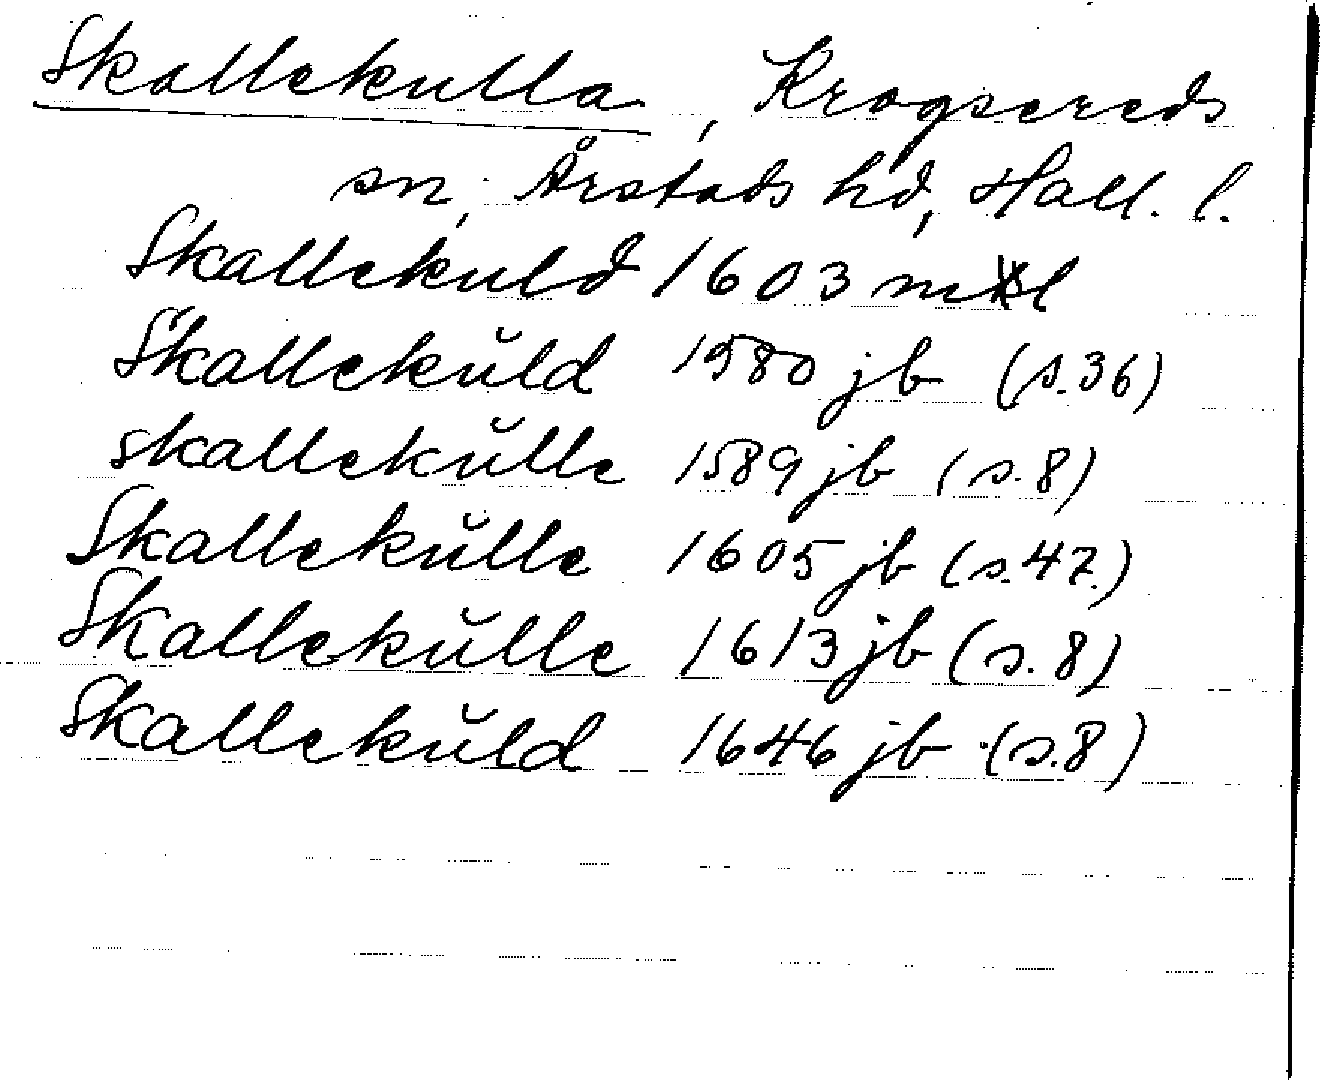 Skallekulla, Krogsereds
sn, Årstads hd, Hall. l.
Skallekuld 1603 mtl
Skallekŭld 1580 jb (s.36)
skallekŭlle 1589 jb (s.8)
Skallekŭlle 1605 jb (s.47.)
Skallekŭlle 1613 jb (s.8)
Skallekŭld 1646 jb (s.8)